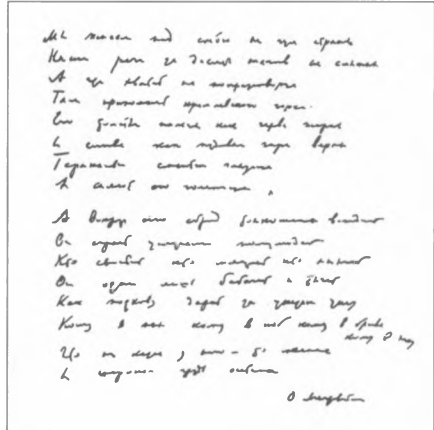 Мы живем под собою не чуя страны
Наши речи за десять шагов не слышны
А где хватит на полразговорца
Там припомнят кремлевского горца.
Его толстые пальцы как черви жирны
А слова как пудовые гири верны
Тараканьи смеются глазища
И сияют его голенища.
А вокруг его сброд тонкошеих вождей
Он играет услугами полулюдей
Кто свистит кто мяучит кто хнычет
Он один лишь бабачит и тычет
Как подкову дарит за указом указ
Кому в пах кому в лоб кому в бровь
кому в глаз
Что ни казнь у него – то малина
И широкая грудь осетина
О Мандельштам